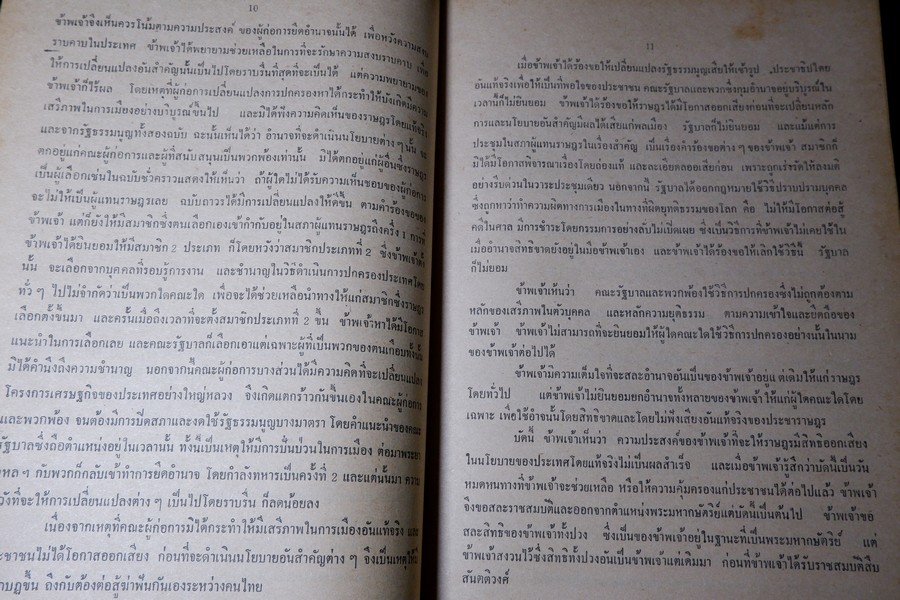 10
ข้าพเจ้าจึงเห็นควรโน้มตามความประสงค์ ของผู้ก่อการยึดอำนาจนั้นได้ เพื่อหวังความสงบ
ราบคาบในประเทศ ข้าพเจ้าได้พยายามช่วยเหลือในการที่จะรักษาความสงบราบคาบ เพื่อ
ให้การเปลี่ยนแปลงอันสำคัญนั้นเป็นไปโดยราบรื่นที่สุดที่จะเป็นได้ แต่ความพยายามของ
ข้าพเจ้าก็ไร้ผล โดยเหตุที่ผู้ก่อการเปลี่ยนแปลงการปกครองหาได้กระทำให้บังเกิดมีความ
เสรีภาพในการเมืองอย่างบริบูรณ์ขึ้นไป และมิได้ฟังความคิดเห็นของราษฎรโดยแท้จริง
และจากรัฐธรรมนูญทั้งสองฉบับ จะเห็นได้ว่า อำนาจที่จะดำเนินนโยบายต่าง ๆ นั้น จะ
ตกอยู่แก่คณะผู้ก่อการและผู้ที่สนับสนุนเป็นพวกพ้องเท่านั้น มิได้ตกอยู่แก่ผู้อื่นซึ่งราษฎร
เป็นผู้เลือกเช่นในฉบับชั่วคราวแสดงให้เห็นว่า ถ้าผู้ใดไม่ได้รับความเห็นชอบของผู้ก่อการ
จะไม่ให้เป็นผู้แทนราษฎรเลย ฉบับถาวรได้มีการเปลี่ยนแปลงให้ดีขึ้น ตามคำร้องขอของ
ข้าพเจ้า แต่ก็ยังให้มีสมาชิกซึ่งตนเลือกเองเข้ากำกับอยู่ในสภาผู้แทนราษฎรถึงครึ่ง 1 การที่
ข้าพเจ้าได้ยินยอมให้มีสมาชิก 2 ประเภท ก็โดยหวังว่าสมาชิกประเภทที่ 2 ซึ่งข้าพเจ้าตั้ง
นั้น จะเลือกจากบุคคลที่รอบรู้การงาน และชำนาญในวิธีดำเนินการปกครองประเทศโดย
ทั่ว ๆ ไปไม่จำกัดว่าเป็นพวกใดคณะใด เพื่อจะได้ช่วยเหลือนำทางให้แก่สมาชิกซึ่งราษฎร
เลือกตั้งขึ้นมา และครั้นเมื่อถึงเวลาที่จะตั้งสมาชิกประเภทที่ 2 ขึ้น ข้าพเจ้าหาได้มีโอกาส
แนะนำในการเลือกเลย และคณะรัฐบาลก็เลือกเอาแต่เฉพาะผู้ที่เป็นพวกของตนเกือบทั้งนั้น
มิได้คำนึงถึงความชำนาญ นอกจากนี้คณะผู้ก่อการบางส่วนได้มีความคิดที่จะเปลี่ยนแปลง
โครงการเศรษฐกิจของประเทศอย่างใหญ่หลวง จึงเกิดแตกร้าวกันขึ้นเองในคณะผู้ก่อการ
และพวกพ้อง จนต้องมีการปิดสภาและงดใช้รัฐธรรมนูญบางมาตรา โดยคำแนะนำของคณะ
รัฐบาลซึ่งถือตำแหน่งอยู่ในเวลานั้น ทั้งนี้เป็นเหตุให้มีการปั่นป่วนในการเมือง ต่อมาพระยา
หล ๆ กับพวกก็กลับเข้าทำการยึดอำนาจ โดยกำลังทหารเป็นครั้งที่ 2 และแต่นั้นมา ความ
วังที่จะให้การเปลี่ยนแปลงต่าง ๆ เป็นไปโดยราบรื่น ก็ลดน้อยลง
เนื่องจากเหตุที่คณะผู้ก่อการมิได้กระทำให้มีเสรีภาพในการเมืองอันแท้จริง และ
ะชาชนไม่ได้โอกาสออกเสียง ก่อนที่จะดำเนินนโยบายอันสำคัญต่าง ๆ จึงเป็นเหตุให้มี
าบฏขึ้น ถึงกับต้องต่อสู้ฆ่าฟันกันเองระหว่างคนไทย
11
เมื่อข้าพเจ้าได้ร้องขอให้เปลี่ยนแปลงรัฐธรรมนูญเสียให้เข้ารูป ประชาธิปไตย
อันแท้จริงเพื่อให้เป็นที่พอใจของประชาชน คณะรัฐบาลและพวกซึ่งกุมอำนาจอยู่บริบูรณ์ใน
เวลานี้ก็ไม่ยินยอม ข้าพเจ้าได้ร้องขอให้ราษฎรได้มีโอกาสออกเสียงก่อนที่จะเปลี่ยนหลัก
การและนโยบายอันสำคัญมีผลได้เสียแก่พลเมือง รัฐบาลก็ไม่ยินยอม และแม้แต่การ
ประชุมในสภาผู้แทนราษฎรในเรื่องสำคัญ เช่นเรื่องคำร้องขอต่างๆ ของข้าพเจ้า สมาชิกก็
มิได้มีโอกาสพิจารณาเรื่องโดยถ่องแท้ และละเอียดลออเสียก่อน เพราะถูกเร่งรัดให้ลงมติ
อย่างรีบด่วนในวาระประชุมเดียว นอกจากนี้ รัฐบาลได้ออกกฎหมายใช้วิธีปราบปรามบุคคล
ซึ่งถูกหาว่าทำความผิดทางการเมืองในทางที่ผิดยุตติธรรมของโลก คือ ไม่ให้มีโอกาสต่อสู้
คดีในศาล มีการชำระโดยกรรมการอย่างลับไม่เปิดเผย ซึ่งเป็นวิธีการที่ข้าพเจ้าไม่เคยใช้ใน
เมื่ออำนาจสิทธิขาดยังอยู่ในมือข้าพเจ้าเอง และข้าพเจ้าได้ร้องขอให้เลิกใช้วิธีนี้ รัฐบาล
ก็ไม่ยอม
ข้าพเจ้าเห็นว่า คณะรัฐบาลและพวกพ้องใช้วิธีการปกครองซึ่งไม่ถูกต้องตาม
หลักของเสรีภาพในตัวบุคคล และหลักความยุติธรรม ตามความเข้าใจและยึดถือของ
ข้าพเจ้า ข้าพเจ้าไม่สามารถที่จะยินยอมให้ผู้ใดคณะใดใช้วิธีการปกครองอย่างนั้นในนาม
ของข้าพเจ้าต่อไปได้
ข้าพเจ้ามีความเต็มใจที่จะสละอำนาจอันเป็นของข้าพเจ้าอยู่แต่เดิมให้แก่ราษฎร
โดยทั่วไป แต่ข้าพเจ้าไม่ยินยอมยกอำนาจทั้งหลายของข้าพเจ้าให้แก่ผู้ใดคณะใดโดย
เฉพาะ เพื่อใช้อำนาจนั้นโดยสิทธิขาดและโดยไม่ฟังเสียงอันแท้จริงของประชาราษฎร
บัดนี้ ข้าพเจ้าเห็นว่า ความประสงค์ของข้าพเจ้าที่จะให้ราษฎรมีสิทธิออกเสียง
ในนโยบายของประเทศโดยแท้จริงไม่เป็นผลสำเร็จ และเมื่อข้าพเจ้ารู้สึกว่าบัดนี้เป็นวัน
หมดหนทางที่ข้าพเจ้าจะช่วยเหลือ หรือให้ความคุ้มครองแก่ประชาชนได้ต่อไปแล้ว ข้าพเจ้า
จึงขอสละราชสมบัติและออกจากตำแหน่งพระมหากษัตริย์แต่บัดนี้เป็นต้นไป ข้าพเจ้าขอ
สละสิทธิของข้าพเจ้าทั้งปวง ซึ่งเป็นของข้าพเจ้าอยู่ในฐานะที่เป็นพระมหากษัตริย์ แต่
ข้าพเจ้าสงวนไว้ซึ่งสิทธิทั้งปวงอันเป็นข้าพเจ้าแต่เดิมมา ก่อนที่ข้าพเจ้าได้รับราชสมบัติสืบ
สันตติวงศ์